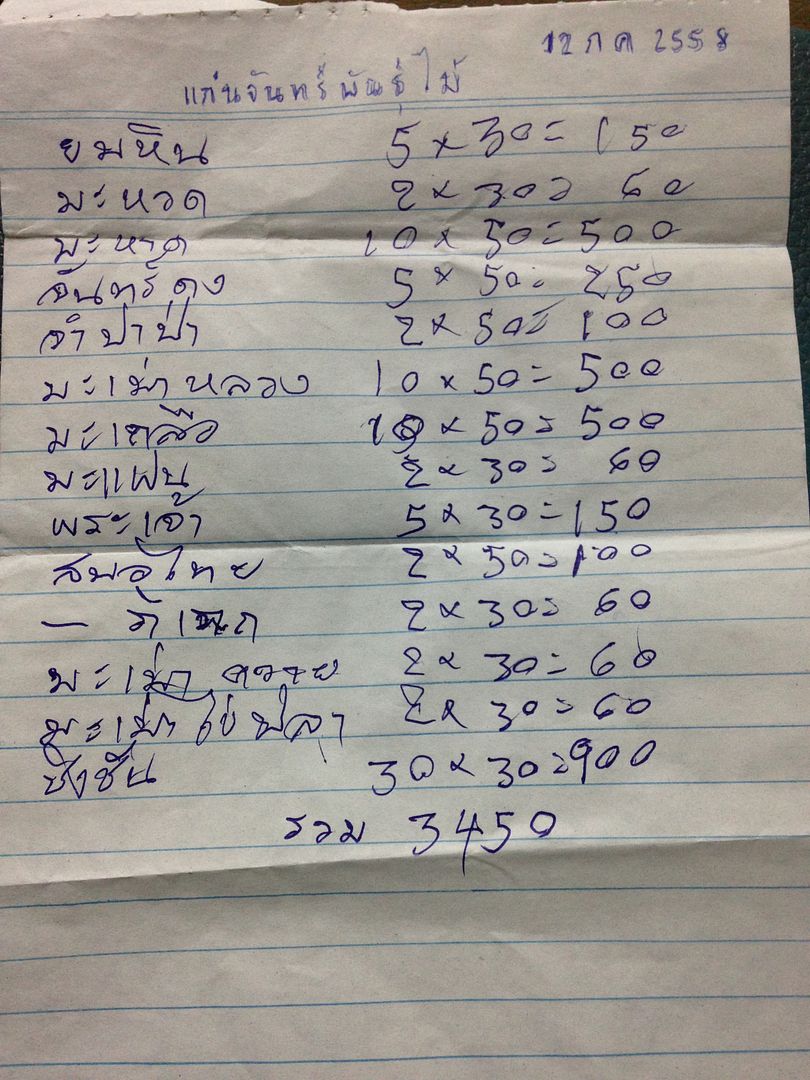 12 กค 2558
แก่นจันทร์พันธุ์ไม้
ยมหิน 5 x 30 = 150
มะหวด 2 x 30 = 60
มะหาด 10 x 50 = 500
จันทร์ดง 5 x 50 = 250
จำปาป่า 2 x 50 = 100
มะเม่าหลวง 10 x 50 = 500
มะเกลือ 10 x 50 = 500
มะแฟน 2 x 30 = 60
พระเจ้า 5 x 30 = 150
สมอไทย 2 x 50 = 100
— 2 x 30 = 60
มะเม่า ควาย 2 x 30 = 60
มะเม่าไข่ปลา 2 x 30 = 60
ชิงชัน 30 x 30 = 900
รวม 3450